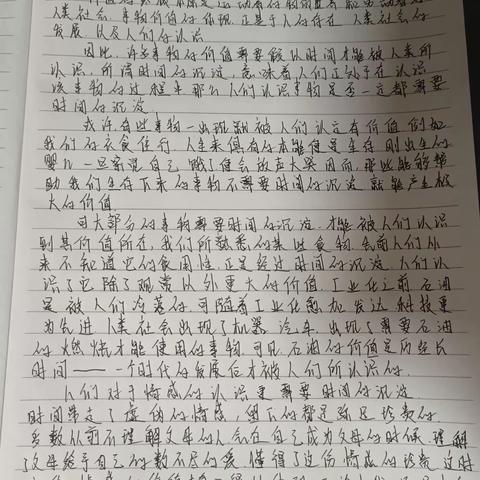 人类社会,事物价值的体现,正基于人的存在,人类社会的
发展,以及人们的认识
因此,许多事物的价值需要经以时间才能被人类所
认识,所谓时间的沉淀,意味着人们正处于在认识
该事物的过程中,那么人们认识事物是否一定都需要
时间的沉淀
或许有些事物一出现就被人们认定有价值,例如
我们的衣食住行,人生来俱有的本能便是生存,刚出生的
婴儿一旦察觉自己饿了便会放声大哭,因而,那些能够帮
助我们生存下来的事物不需要时间的沉淀,就能产生极
大的价值
可大部分的事物需要时间的沉淀,才能被人们认识
到其价值所在,我们所熟悉的某些食物,先前人们从
来不知道它的食用性,正是经过时间的沉淀,人们认
识了它除了观赏以外更大的价值,工业化之前,石油
是被人们冷落的,可随着工业化愈加发达,科技更
为先进,人类社会出现了机器,汽车,出现了需要石油
的燃烧才能使用的事物,可见,石油的价值是历经长
时间——一个时代的发展后才被人们所认识的.
人们对于情感的认识更需要时间的沉淀
时间带走了虚伪的情感,留下的都是弥足珍贵的
多数从前不理解父母的人会在自己成为父母的时候,理解
了父母给予自己的数不尽的爱,懂得了这份情感的珍贵,这时